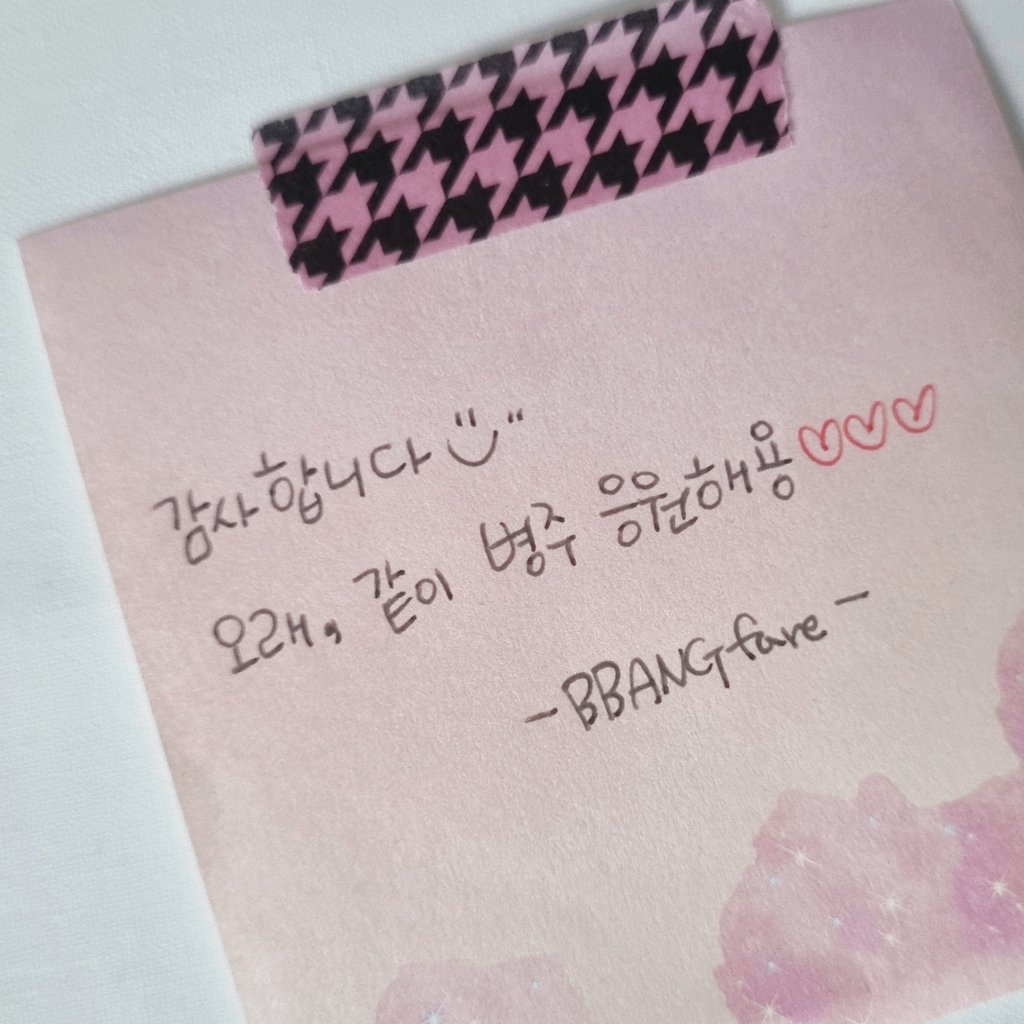 감사합니다
오래, 같이 병주 응원해용♡♡♡
-BBANGfare-